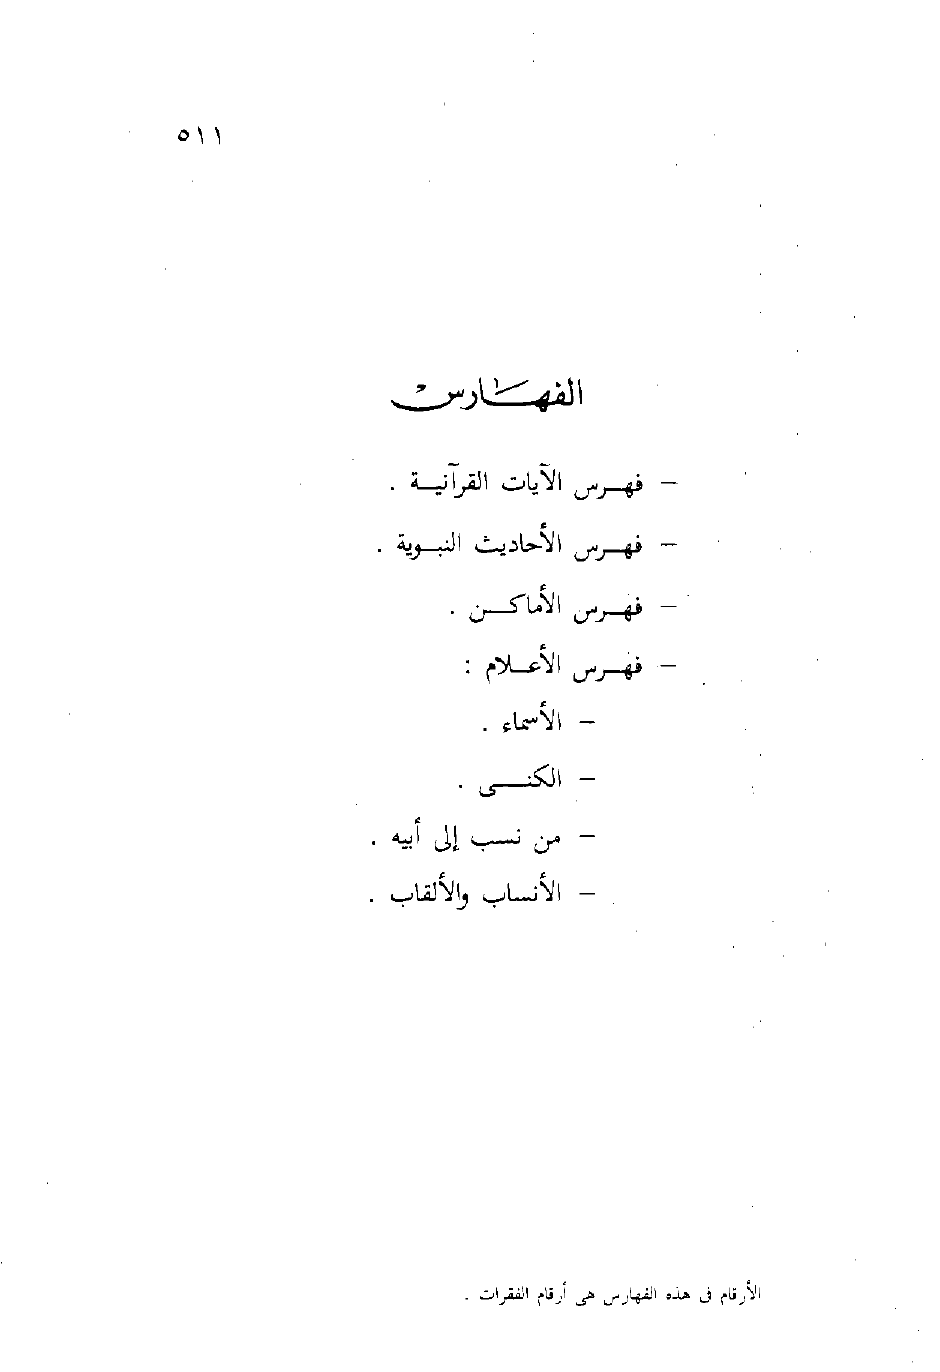 ٥١١
الفهارس
– فهرس الآيات القرآنية .
– فهرس الأحاديث النبوية .
– فهرس الأماكن .
– فهرس الأعلام :
– الأسماء .
– الكنى .
– من نسب إلى أبيه .
– الأنساب والألقاب .
الأرقام فى هذه الفهارس هى أرقام الفقرات .